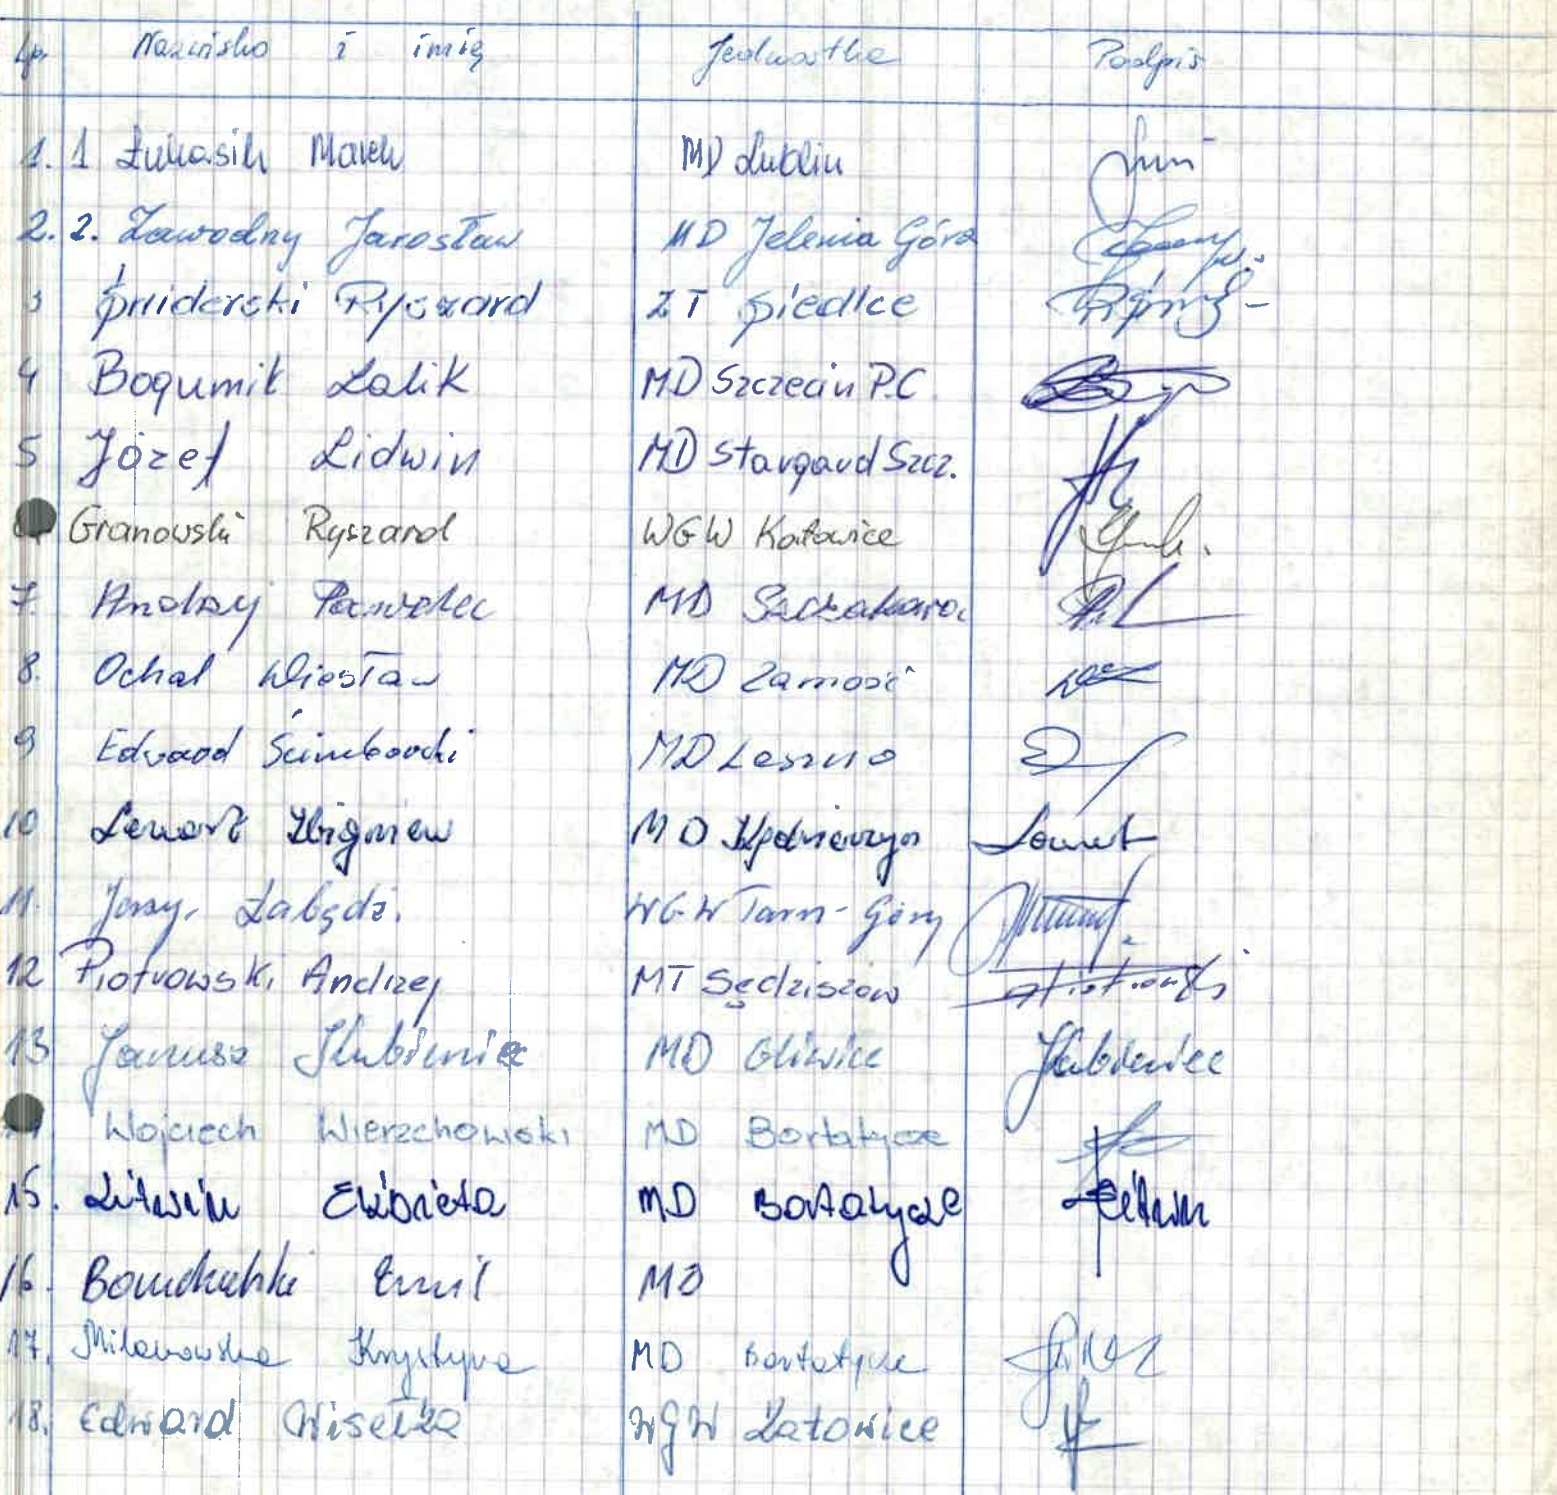 Lp. Nazwisko i imię Jednostka Podpis
1. 1 Łukasik Marek MD Lublin
2. 2. Zawodny Jarosław MD Jelenia Góra
3 Świderski Ryszard ZT Siedlce
4 Bogumił Lalik MD Szczecin P.C.
5 Józef Lidwin MD Stargard Szcz.
Granowski Ryszard WGW Katowice
7. Andrzej Pawelec MD
8. Ochal Wiesław MD Zamość
9 Edward MD Leszno
10 Lenart Zbigniew MD
11. Jerzy Łabędź. WGW Tarn-Góry
12 Piotrowski Andrzej MT Sędziszów
13 Janusz Kubieniec MD Gliwice Kubieniec
Wojciech Wierzchowski MD Bortatycze
15. Litwin Elżbieta MD Bortatycze Litwin
16. Emil MD
17. Milanowska Krystyna MD Bortatycze
18. Edward Wisełka WGW Katowice